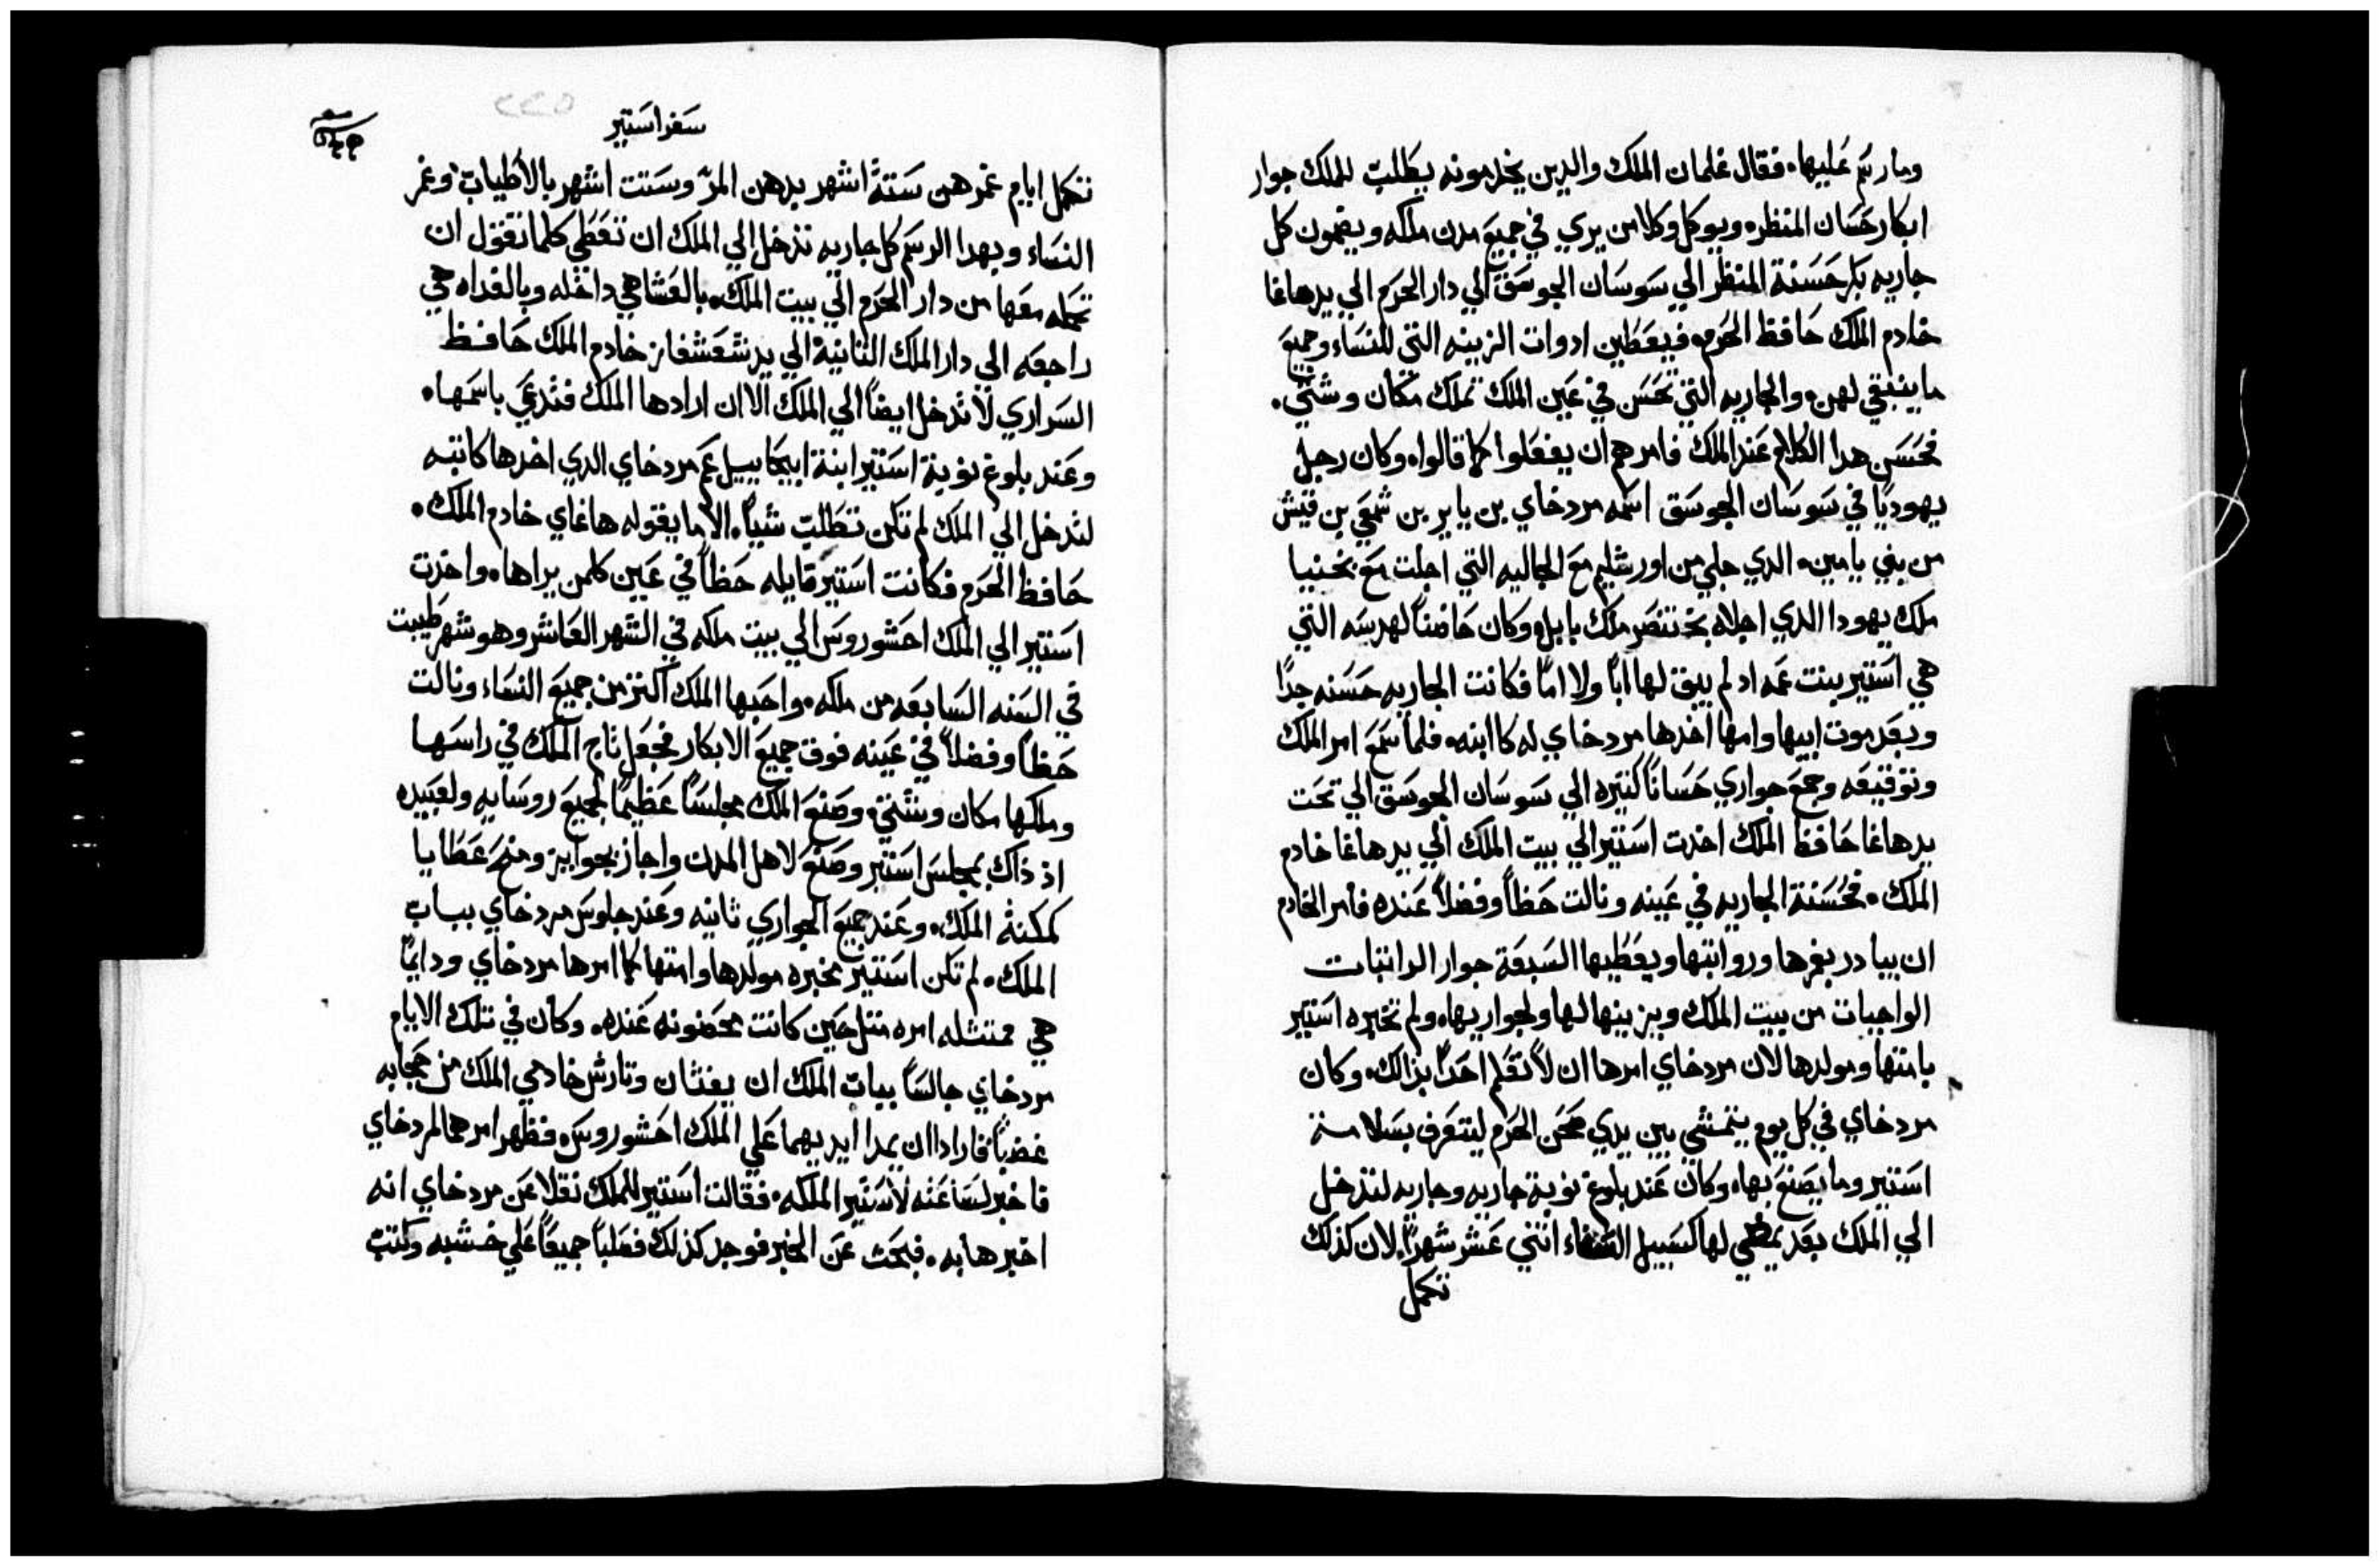 وما رسم عليها. فقال غلمان الملك والدين يخدمونه يطلب للملك جوار
ابكار حسان المنظر. ويوكل وكلا من يري في جميع مدن ملكه ويضمون كل
جاريه بكر حسنة المنظر الي سوسان الجوسق الي دار الحرم الي يد هاغا
خادم الملك حافظ الحرم. فيعطين ادوات الزينه التي للنساء وجميع
ما ينبغي لهن. والجاريه التي تحسن في عين الملك تملك مكان وشتي.
فحسن هدا الكلام عند الملك فامرهم ان يفعلوا كما قالوا. وكان رجل
يهوديا في سوسان الجوسق اسمه مردخاي بن يابر بن شمعي بن قيش
من بني يامين. الدي جلي من اورشليم مع الجاليه التي اجلت مع يخنيا
ملك يهودا الدي اجلاه بختنصر ملك بابل. وكان حاضنا لهدسه التي
هي استير بنت عمه اد لم يبق لها ابا ولا اما فكانت الجاريه حسنه جدا
وبعد موت ابيها وامها اخدها مردخاي له كاابنه. فلما سمع امر الملك
وتوقيعه وجمع جواري حسانا كثيره الي سوسان الجوسق الي تحت
يد هاغا حافظ الملك اخدت استير الي بيت الملك الي يد هاغا خادم
الملك. فحسنة الجاريه في عينه ونالت حظا وفضلا عنده فامر الخادم
ان يبادر بغمرها ورواتبها ويعطيها السبعة جوار الراتبات
الواجبات من بيت الملك ويزينها لها ولجواريها. ولم تخبره استير
بامتها ومولدها لان مردخاي امرها ان لا تعلم احدا بذالك. وكان
مردخاي في كل يوم يتمشي بين يدي صحن الحرم ليتعرف بسلامة
استير وما يصنع بها. وكان عند بلوغ نوبة جاريه وجاريه لتدخل
الي الملك بعد يمضي لها كسبيل النساء اتني عشر شهرا. لان كذلك
تكمل
سفر استير
تكمل ايام غمرهن ستة اشهر بدهن المر وستت اشهر بالاطياب وغمر
النساء وبهدا الرسم كل جاريه تدخل الي الملك ان تعطي كلما تقول ان
تجمله معها من دار الحرم الي بيت الملك. بالعشا هي داخله وبالغداه هي
راجعه الي دار الملك الثانية الي يد شعشغاز خادم الملك حافظ
السراري لا تدخل ايضا الي الملك الا ان ارادها الملك فتدعي باسمها.
وعند بلوغ نوبة استير ابنة ابيحاييل عم مردخاي الدي اخدها كابنته
لتدخل الي الملك لم تكن تطلب شيا. الا ما يقوله هاغاي خادم الملك.
حافظ الحرم فكانت استير قايله حظا في عين كلمن يراها. واخذت
استير الي الملك احشوروس الي بيت ملكه في الشهر العاشر وهو شهر طيبت
في السنه السابعه من ملكه. واحبها الملك اكتر من جميع النساء ونالت
حظا وفضلا في عينه فوق جميع الابكار فجعل تاج الملك في راسها
وملكها مكان وشتي. وصنع الملك مجلسا عظيما لجميع روسايه ولعبيده
اذ ذاك بمجلس استير وصنع لاهل المدن واجاز بجوايز ومنح عطايا
كمكنة الملك. وعند جميع الجواري ثانيه وعند جلوس مردخاي بباب
الملك. لم تكن استير مخبره مولدها وامتها كما امرها مردخاي ودايما
هي ممتثله امره متل حين كانت محضونه عنده. وكان في تلك الايام
مردخاي جالسا بباب الملك ان بغتان وتارش خادمي الملك من حجابه
غضبا فارادا ان يمدا ايديهما علي الملك احشوروس. فظهر امرهما لمردخاي
فاخبر لساعته لاستير الملكه. فقالت استير للملك نقلا عن مردخاي انه
اخبرها به. فبحت عن الخبر فوجد كذلك فصلبا جميعا علي خشبه وكتب